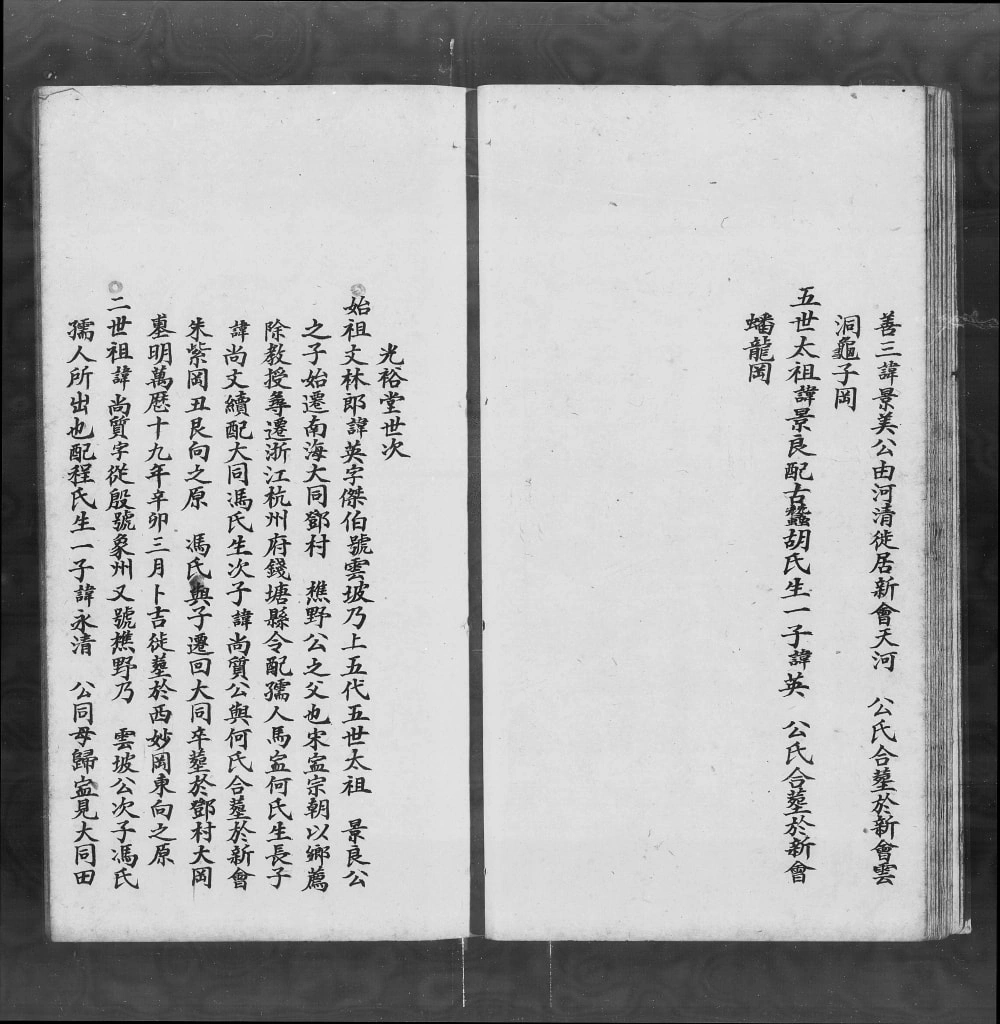 善三諱景美公由河清徙居新會天河　公氏合塟於新會雲
洞龜子岡
五世太祖諱景良配古蠶胡氏生一子諱英　公氏合塟於新會
蟠龍岡
光裕堂世次
始祖文林郎諱英字傑伯號雲坡乃上五代五世太祖　景良公
之子始遷南海大同鄧村　樵野公之父也宋寍宗朝以鄉薦
除教授尋遷浙江杭州府錢塘縣令配孺人馬寍何氏生長子
諱尚文續配大同馮氏生次子諱尚質公與何氏合塟於新會
朱紫岡丑艮向之原　馮氏與子遷回大同卒塟於鄧村大岡
墓明萬厯十九年辛卯三月卜吉徙塟於西妙岡東向之原
二世祖諱尚質字從殷號象州又號樵野乃　雲坡公次子馮氏
孺人所出也配程氏生一子諱永清　公同母歸寍見大同田